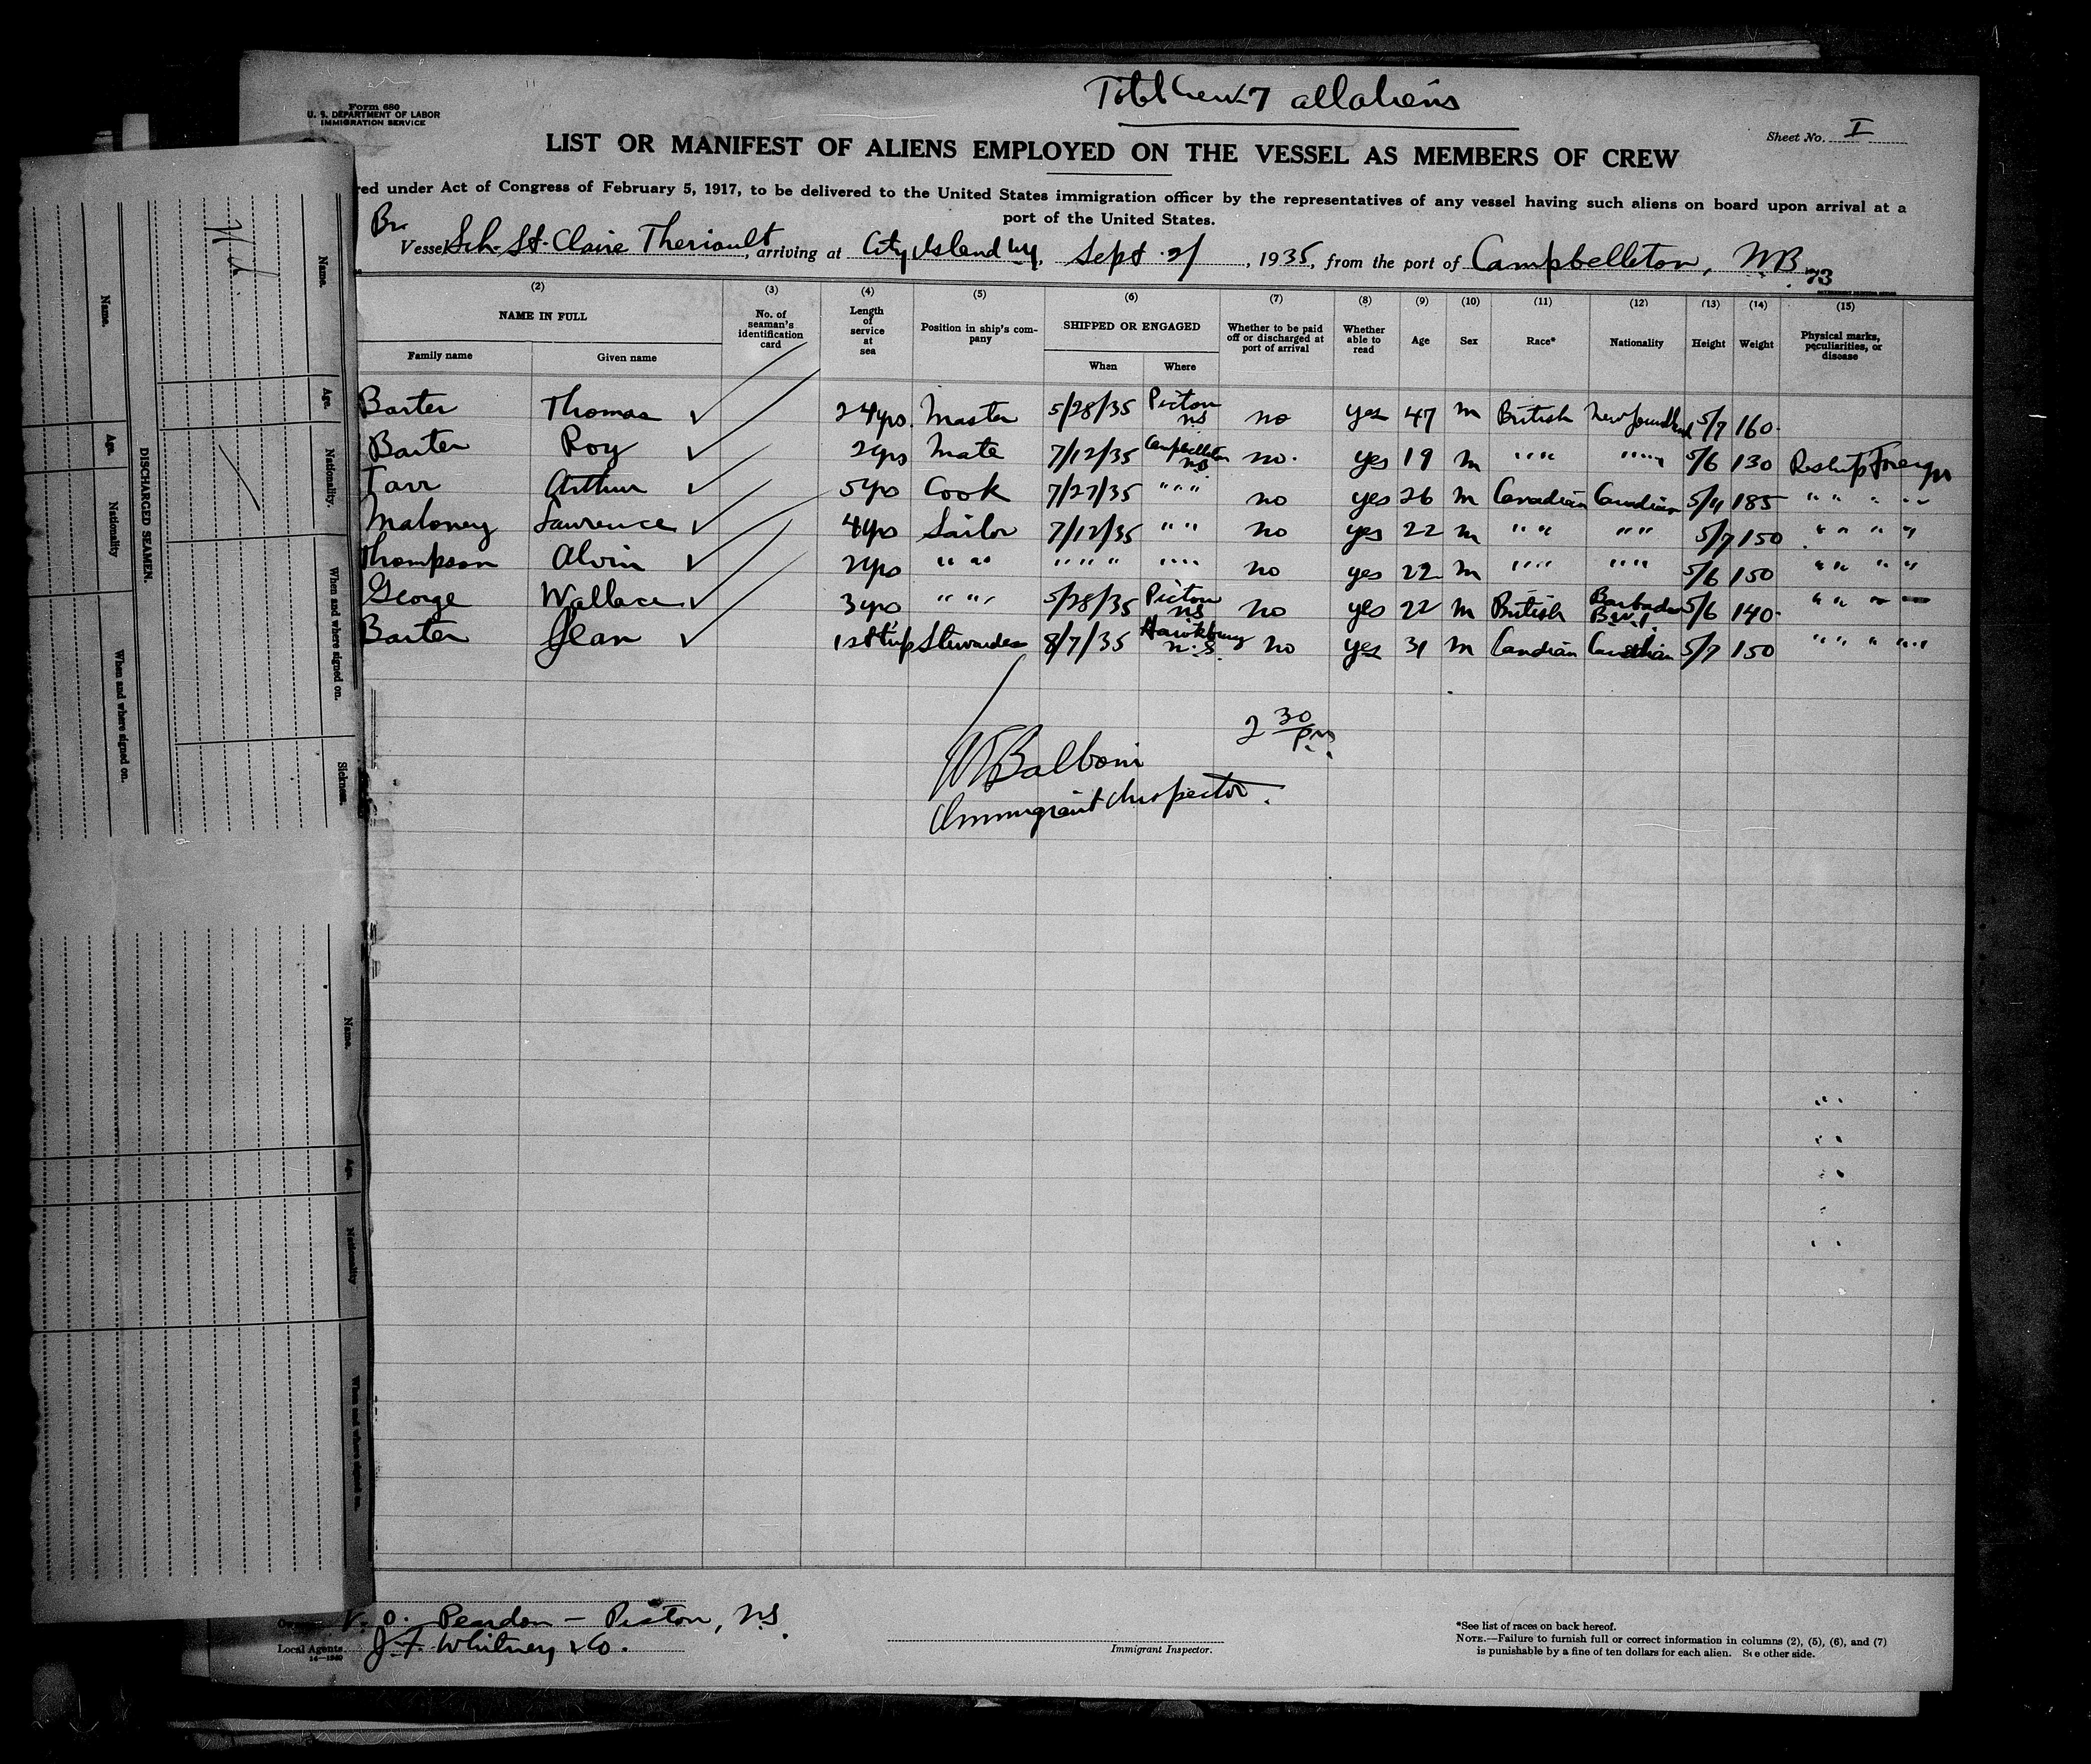 Total Crew 7 all aliens
Form 680
U. S. DEPARTMENT OF LABOR
IMMIGRATION SERVICE
Sheet No. I
LIST OR MANIFEST OF ALIENS EMPLOYED ON THE VESSEL AS MEMBERS OF CREW
red under Act of Congress of February 5, 1917, to be delivered to the United States immigration officer by the representatives of any vessel having such aliens on board upon arrival at a
port of the United States.
Br.
Vessel Sch. St. Claire Theriault, arriving at City Island Ny., Sept. 21, 1935, from the port of Campbellton, NB
73
(2) (3) (4) (5) (6) (7) (8) (9) (10) (11) (12) (13) (14) (15)
NAME IN FULL No. of seaman's identification card Length of service at sea Position in ship's company SHIPPED OR ENGAGED Whether to be paid off or discharged at port of arrival Whether able to read Age Sex Race* Nationality Height Weight Physical marks, peculiarities, or disease
Family name Given name When Where
Barter Thomas ✓ 24yrs. Master 5/28/35 Picton NS no yes 47 m British Newfoundland 5/7 160
Barter Roy ✓ 2yrs Mate 7/12/35 Campbellton NB no. yes 19 m " " " " " " " " 5/6 130 Reship Foreign
Tarr Arthur ✓ 5yrs Cook 7/27/35 " " " no yes 26 m Canadian Canadian 5/11 185 " " " "
Maloney Lawrence ✓ 4yrs Sailor 7/12/35 " " no yes 22 m " " " " 5/7 150 " " " "
Thompson Alvin ✓ 2yrs " " " " " " " " " no yes 22 m " " " " 5/6 150 " " " "
George Wallace ✓ 3yrs " " " 5/28/35 Picton NS no yes 22 m British Barbados B.W.I. 5/6 140 " " " "
Barter Jean ✓ 1st trip Stewardess 8/7/35 Hawkbury N.S. no yes 31 m Candian Canadian 5/7 150 " " " "
2 30 PM
Balboni
Immigrant Inspector.
V. O. Peardon — Picton, NS.
Local Agents J. F. Whitney & Co.
14—1240
Immigrant Inspector.
*See list of races on back hereof.
NOTE.—Failure to furnish full or correct information in columns (2), (5), (6), and (7)
is punishable by a fine of ten dollars for each alien. See other side.
DISCHARGED SEAMEN.
Name. Age. Nationality When and where signed on.
Name. Age. Nationality. When and where signed on. Sickness.
Name. Age. Nationality When and where signed on.